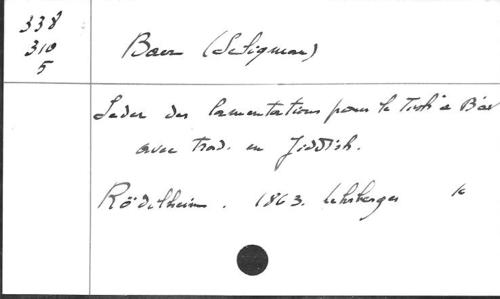 338
310
5
Baer (Seligman)
Seder des lamentations pour le Tish'a B'av
avec trad. en Jiddish.
Rödelheim. 1863. Lehrberger